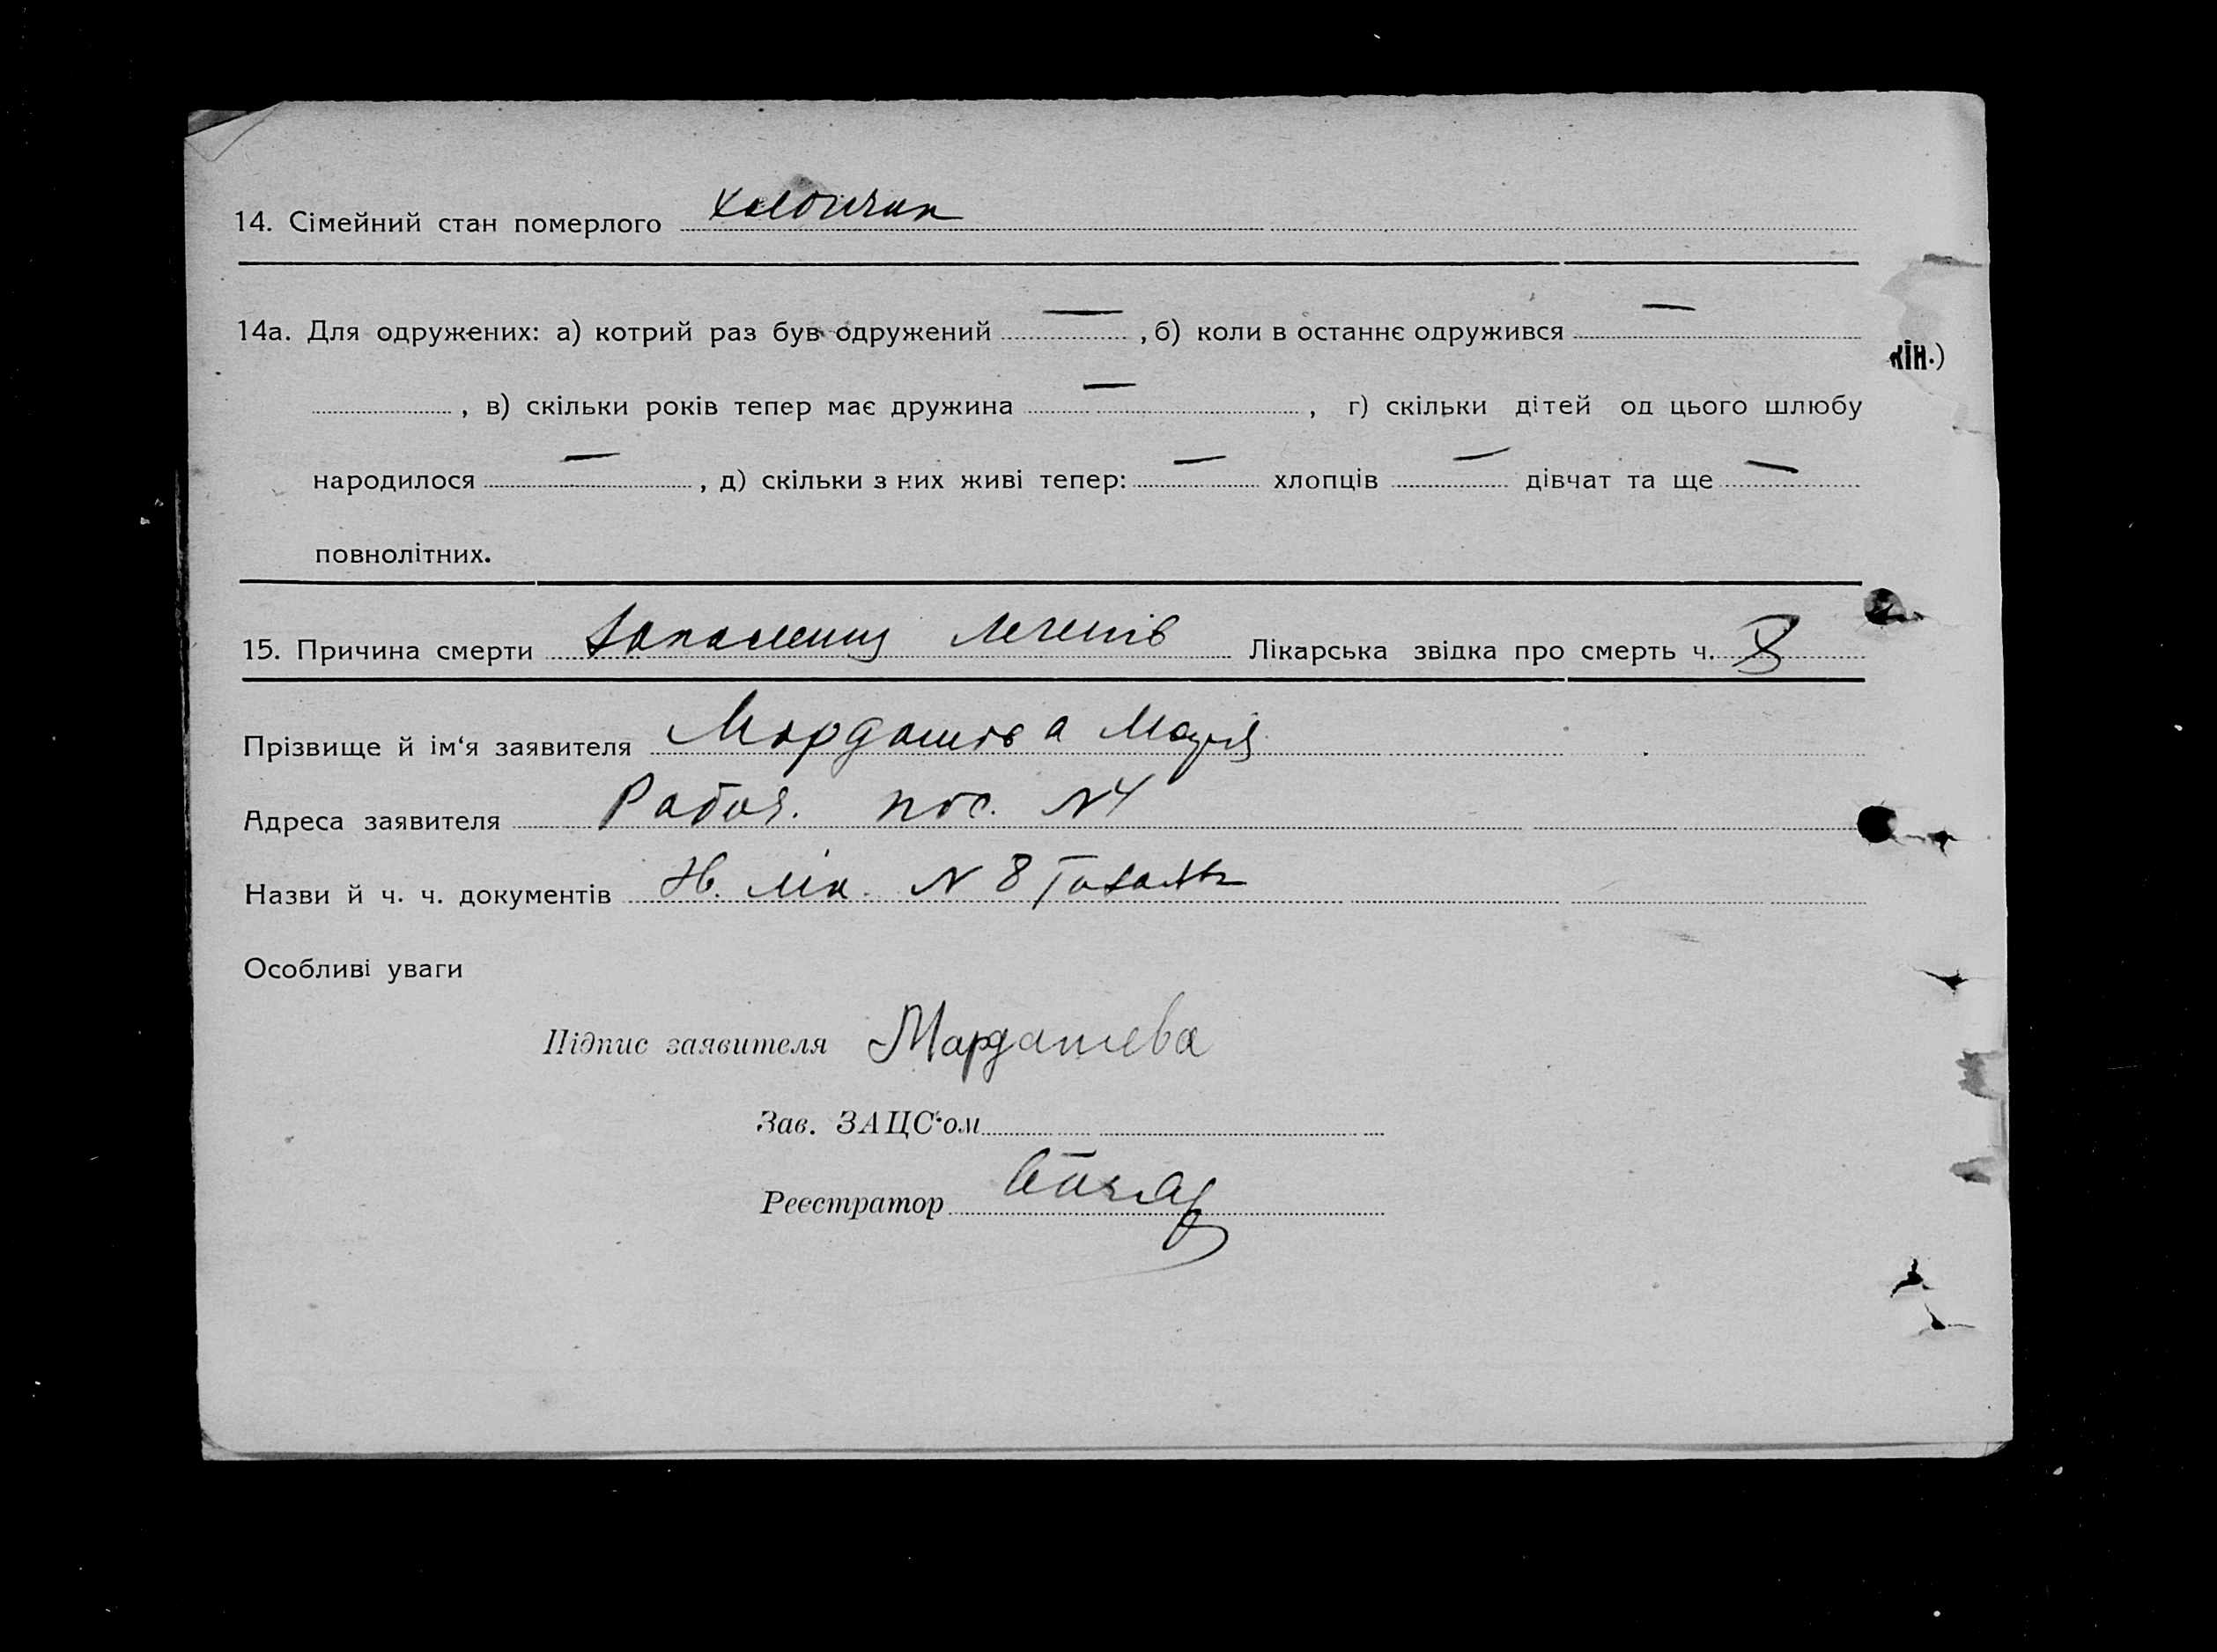 14. Сімейний стан померлого хлопчик
14а. Для одружених: а) котрий раз був одружений — , б) коли в останнє одружився —
кін.)
, в) скільки років тепер має дружина — , г) скільки дітей од цього шлюбу
народилося — , д) скільки з них живі тепер: — хлопців — дівчат та ще —
повнолітних.
15. Причина смерти запалення легенів Лікарська звідка про смерть ч. 8
Прізвище й ім‘я заявителя Мордашова Марія
Адреса заявителя Рабоч. пос. №4
Назви й ч. ч. документів лік. № 8
Особливі уваги
Підпис заявителя Мардашева
Зав. ЗАЦС‘ом
Реєстратор